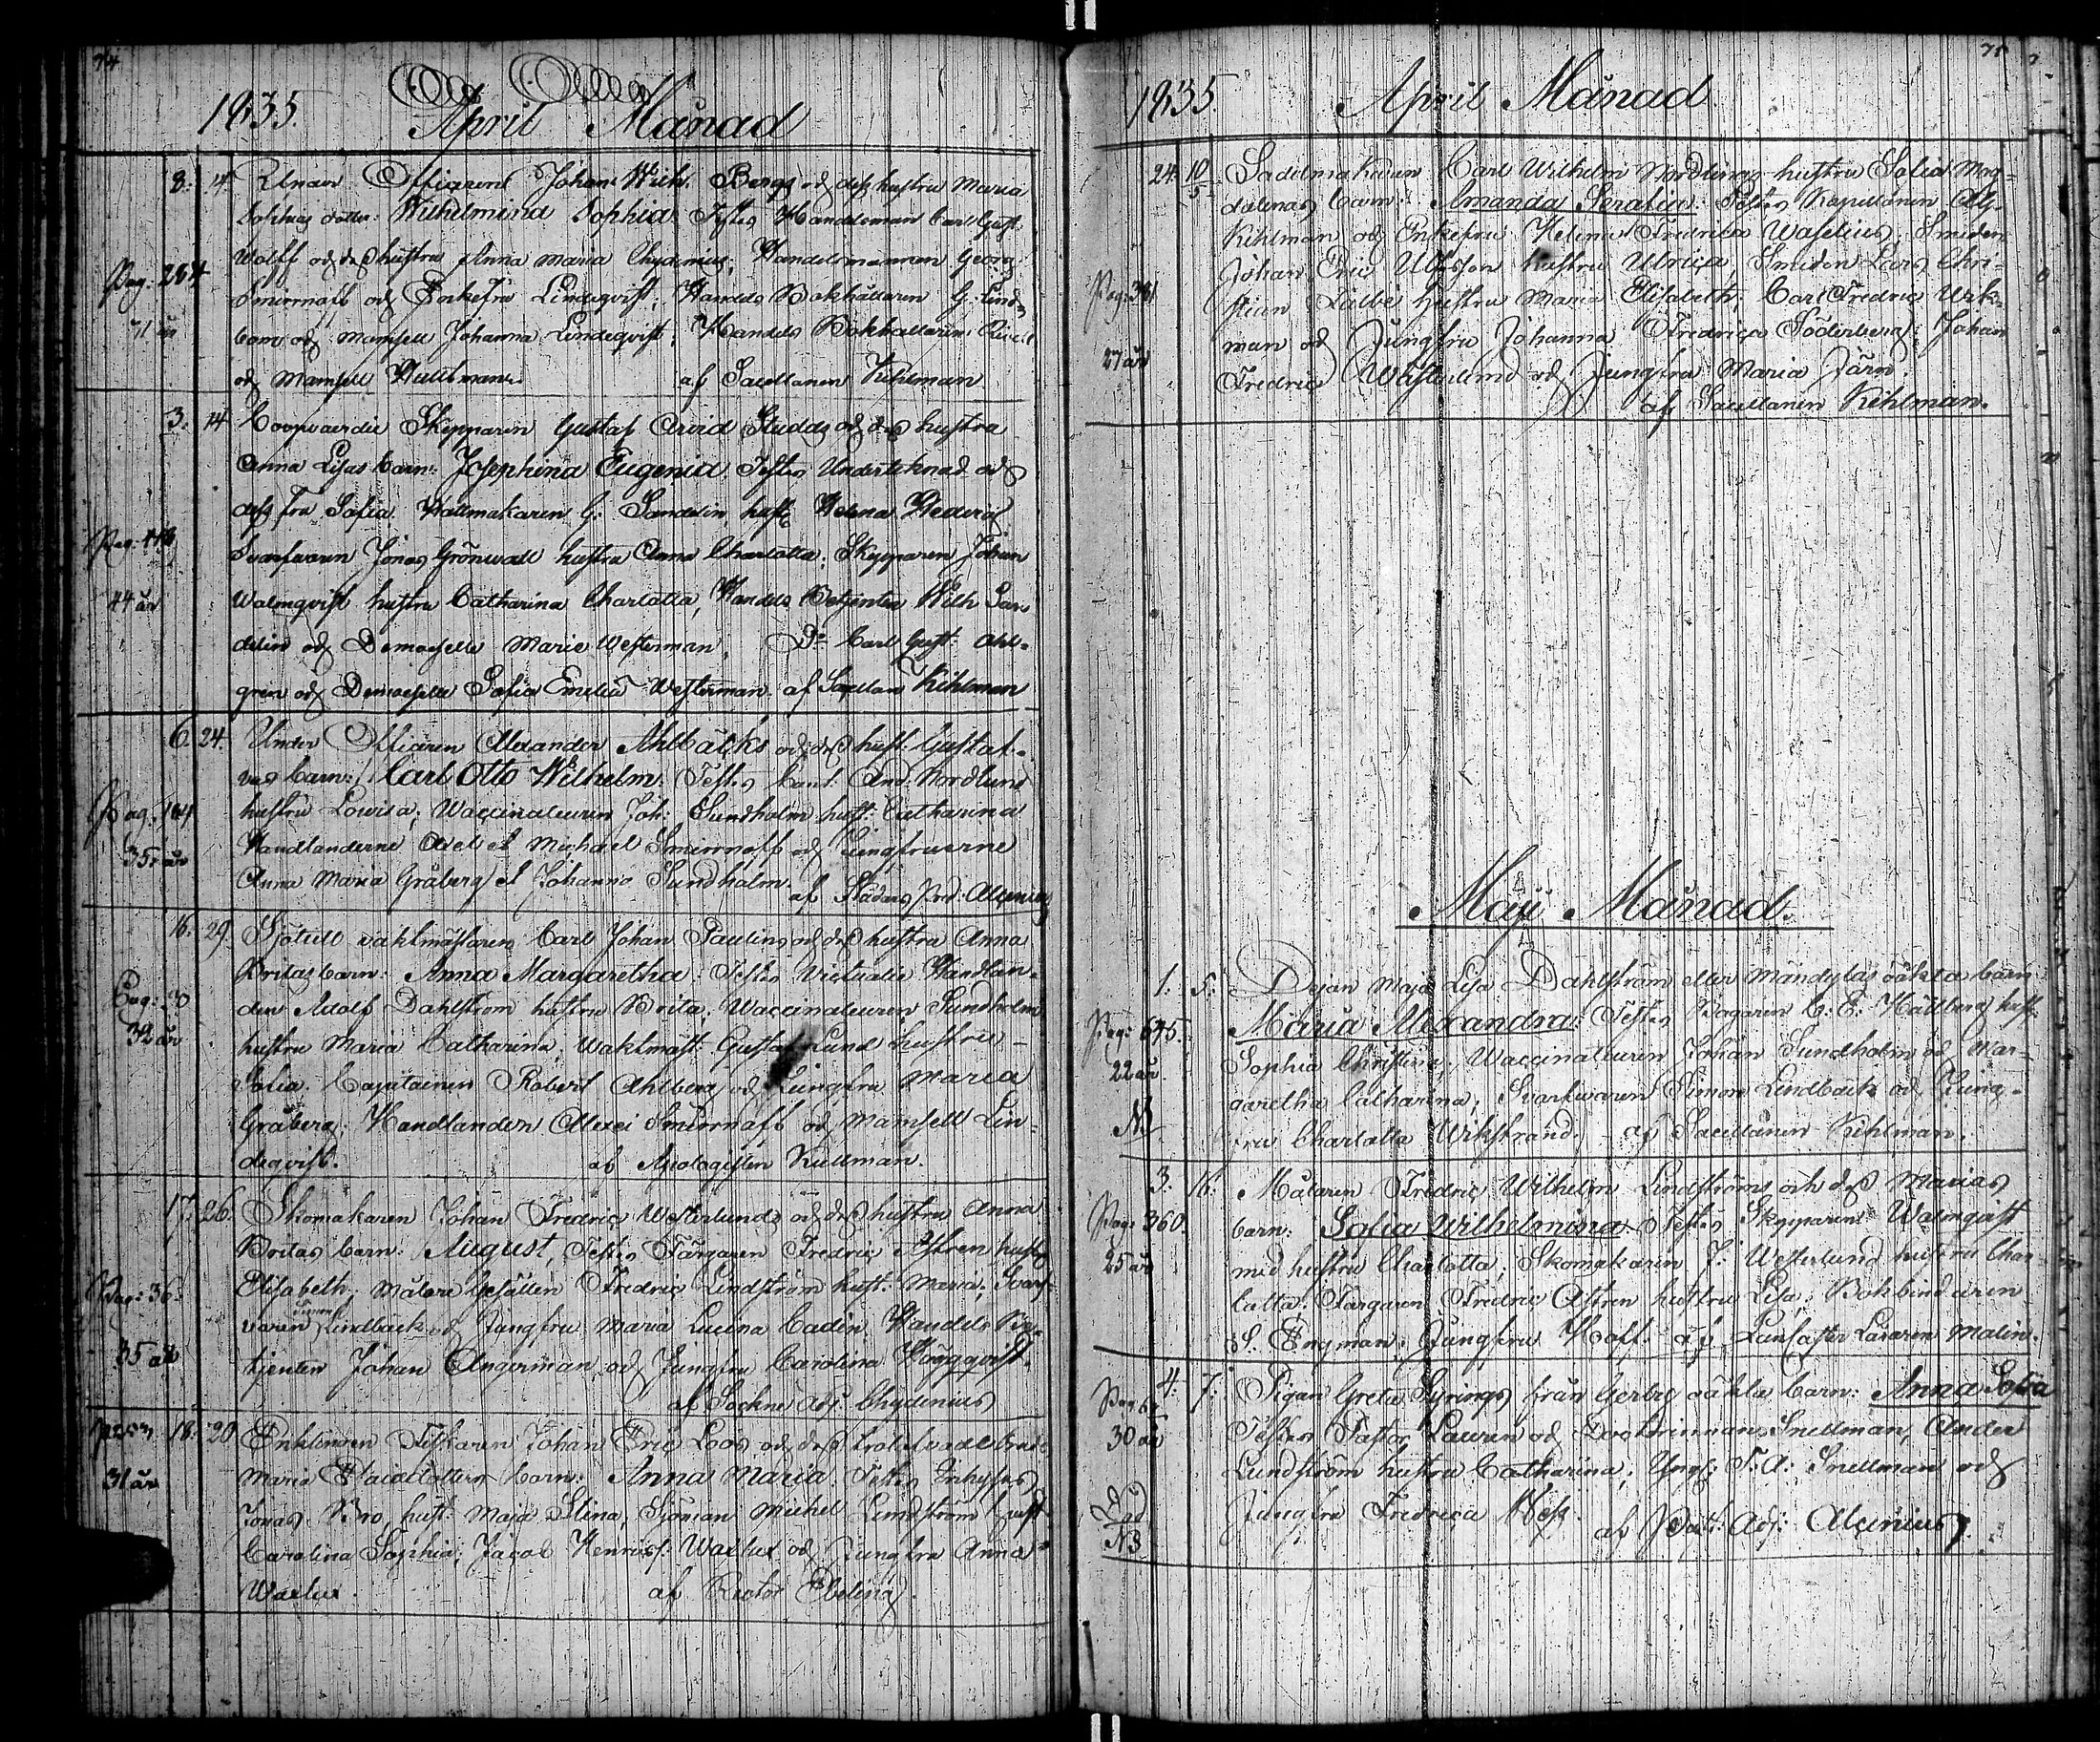 74
1835. April Månad
8. 14. Under Officeren Johan Wilh. Bergs och dess hustru Maria
Sophias dotter: Wilhelmina Sophia. Testes Handelsman Carl Gust.
Wolff och dess hustru Anna Maria Chydenius; Handelsmannen Georg
Pag: 284
Smirnoff och Enkefru Lindeqvist; Handels Bokhållaren G: Lind-
71 år
bom och Mamsell Johanna Lindeqvist; Handels Bokhållaren
och Mamsell Hultman. af Sacellanen Kihlman
3. 14 Coopvaerdie Skepparen Gustaf Arvid Studds och dess hustru
Anna Lisas barn: Josephina Eugenia. Testes Undertecknad och
dess fru Sofia. Hattmakaren G: Sandelin, hust: Helena Hedvig
Svarfvaren Jonas Grönwall hustru Anna Charlotta; Skepparen Johan
44 år
Walmqvist hustru Catharina Charlotta, Handels Betjenten Wilh San-
delin och Demoiselle Marie Westerman, Do Carl Gust: Ahl-
gren och Demoiselle Sofia Emelie Westerman. af Sacellan Kihlman
6. 24. Under Officeren Alexander Ahlbäcks och dess hust: Gustaf-
vas barn: Carl Otto Wilhelm. Testes Cant. And. Nordlund
hustru Lovisa; Vaccinateuren Joh: Sundholm hust: Catharina
35 år
Handlanderne Axel et Michael Smirnoff och Jungfruerne
Anna Maria Gråberg et Johanna Sundholm.
af Stadens Pred: Alcenius
16. 29. Sjötull vaktmästaren Carl Johan Paulins och dess hustru Anna
Britas barn: Anna Margaretha: Testes Victualie Handlan-
Pag: 30
den Adolf Dahlström hustru Brita; Vaccinateuren Sundholm
32 år
hustru Maria Catharina; Waktmäst: Gustaf Lund hustru
Sofia. Capitainen Robert Ahlberg och Jungfru Maria
Gråberg; Handlanden Alexei Smirnoff och Mamsell Lin-
deqvist. af Apologisten Kullman.
17. 26. Skomakaren Johan Fredric Westerlunds och dess hustru Anna
Britas barn: August, Testes Färgaren Fredric Astren hustru
Elisabeth; Målare Gesällen Fredric Lindström hust: Maria; Svarf-
Pag: 36.
varen Simon Lindbäck och Jungfru Maria Lucina Cadin, Handels Be-
35 år
tjenten Johan Ångerman och Jungfru Carolina Häggqvist.
af Sockne Adj. Chydenius
18. 20 Enklingen Fiskaren Johan Eric Loos och dess trolofvade
31 år
Maria barn: Anna Maria. Testes Inhyses
Jonas Bro, hust: Maja Stina, Sjöman Michel Lindström hust
Carolina Sophia; Jacob Henrics: Waxlax och Jungfru Anna
Waxlax. af Rector Ebeling.
1835 April Månad
24. 10/5 Sadelmakaren Carl Wilhelm Nordlings hustru Sofia Mag-
dalenas barn: Amanda Serafia: Testes Kapellanen Alf.
Kihlman och Enkefru Helena Fredrica Waselius; Smeden
Johan Eric Ulfsson hustru Ulrica, Smeden Lars Chri-
Pag: 361
stian Dalbe hustru Maria Elisabeth; Carl Fredric Wik-
man och Jungfru Johanna Fredrica Söderberg; Johan
27 år
Fredric Wästerlund och Jungfru Maria Järn.
af Sacellanen Kihlman.
Maji Månad.
1. 5. Pigan Maja Lisa Dahlström eller Mändylas oäkta barn
Maria Alexandra: Testes Bagaren C. E. Hällberg hust:
Pag: 645.
Sophia Christina, Vaccinateuren Johan Sundholm och Mar-
22 år
garetha Catharina; Svarfvaren Simon Lindbäck och Jung-
fru Charlotta Wikstrand. af Sacellanen Kihlman.
3. 16. Målaren Fredric Wilhelm Lindströms och dess Marias
Pag: 360.
barn: Sofia Wilhelmina: Testes Skepparen Walmqvist
25 år
med hustru Charlotta; Skomakaren J: Westerlund hustru Char-
lotta; Färgaren Fredric Astren hustru Lisa; Bokbindaren
S. Engman; Jungfru Hoff. af Lancaster Läraren Malin.
4. 7. Pigan Greta Syrings från Gerby oäkta barn: Anna Sofia
30 år
Testes Pastor Lauren och Doctorinnan Snellman, Anders
Lundström hustru Catharina; Yngl: F. A: Snellman och
Död
NB
Jungfru Fredrica Hess. af Past: Adj: Alcenius